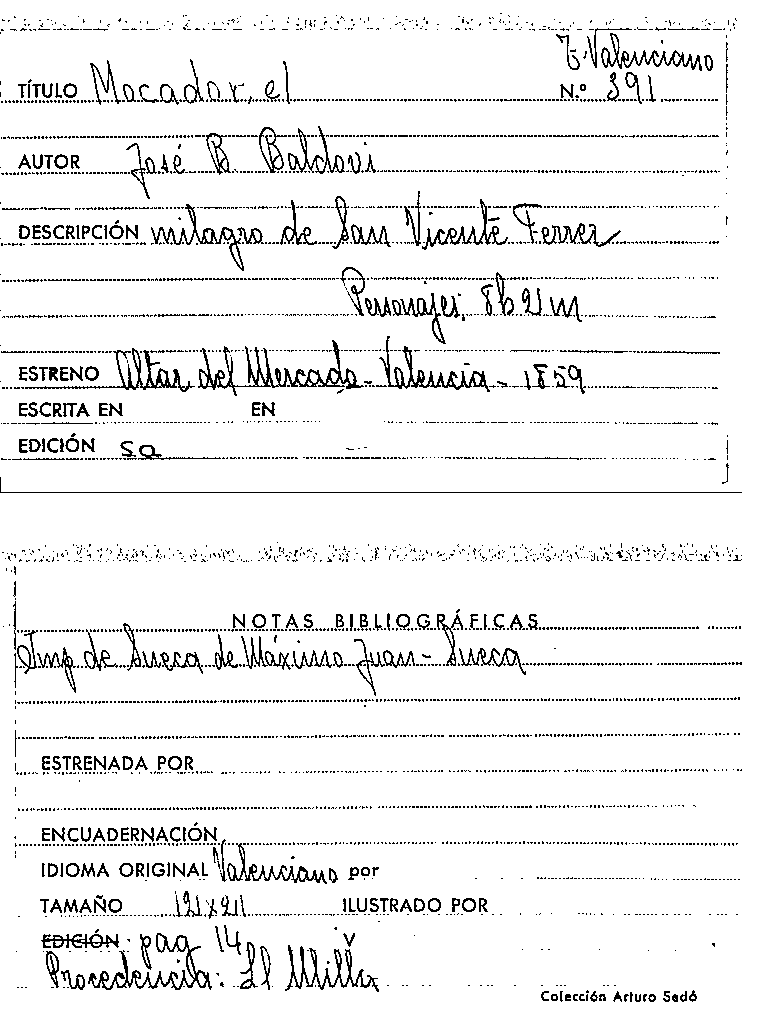 T. Valenciano
TÍTULO Mocador, el N.º 391
AUTOR José B. Baldovi
DESCRIPCIÓN milagro de San Vicente Ferrer
Personajes: 8h 21m
ESTRENO Altar del Mercado - Valencia - 1859
ESCRITA EN EN
EDICIÓN sa
NOTAS BIBLIOGRÁFICAS
Imp de Sueca de Máximo Juan - Sueca
ESTRENADA POR
ENCUADERNACIÓN
IDIOMA ORIGINAL Valenciano por
TAMAÑO ILUSTRADO POR
EDICIÓN · pag 14
Procedencia:
Colección Arturo Sedó